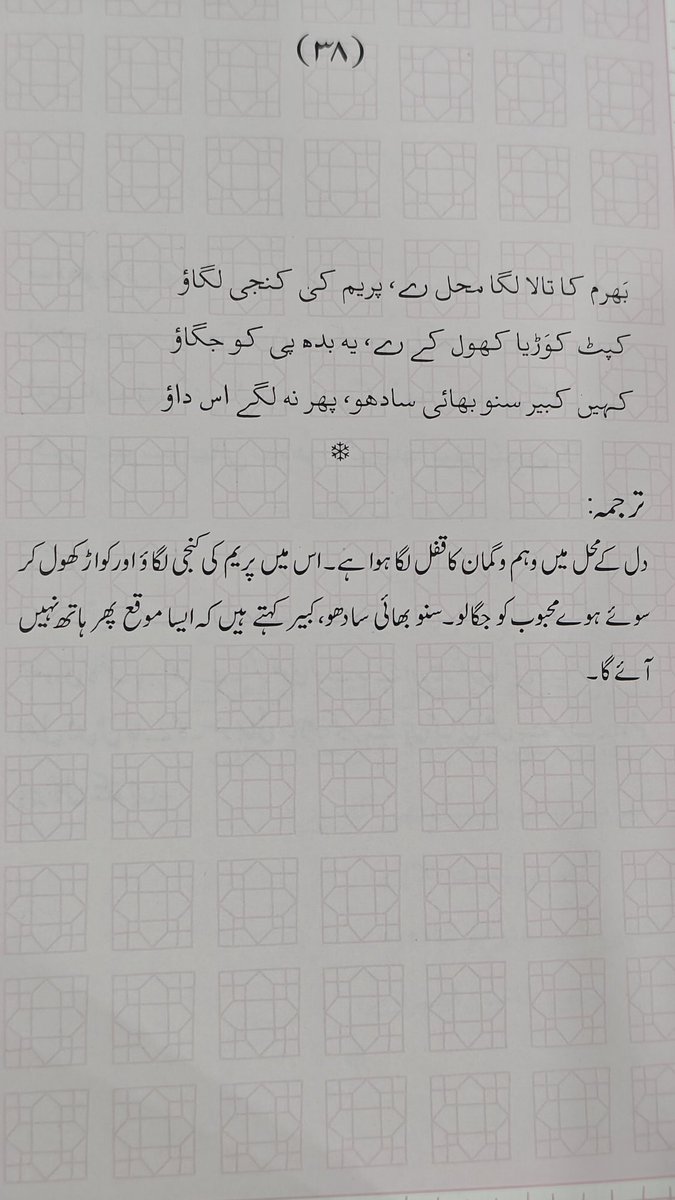 (۳۸)
بَھرم کا تالا لگا محل رے، پریم کی کنجی لگاؤ
کپٹ کِوَڑیا کھول کے رے، یہ بدہ پی کو جگاؤ
کہیں کبیر سنو بھائی سادھو، پھر نہ لگے اس داؤ
ترجمہ:
دل کے محل میں وہم و گمان کا قفل لگا ہوا ہے۔ اس میں پریم کی کنجی لگاؤ اور کواڑ کھول کر
سوئے ہوے محبوب کو جگالو۔ سنو بھائی سادھو، کبیر کہتے ہیں کہ ایسا موقع پھر ہاتھ نہیں
آئے گا۔